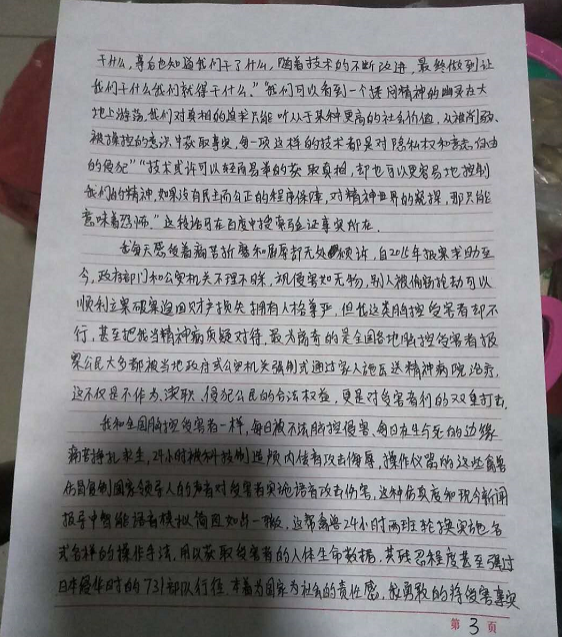 干什么，事后也知道我们干了什么，随着技术的不断改进，最终做到让
我们干什么我们就得干什么。”“我们可以看到一个拷问精神的幽灵在大
地上游荡，我们对真相的追求只能听从于某种更高的社会价值，从被闭
被操控的意识中获取事实，每一项这样的技术都是对隐私权和意志自由
的侵犯”“技术或许可以轻而易举的获取真相，却也可以更容易地控制
我们的精神，如果没有民主而公正的程序保障，对精神世界的窥探，那只能
意味着恐怖。”这段话可在百度中搜索验证事实所在。
我每天感受着痛苦折磨和屈辱却无处倾诉，自2015年报案求助至
今，政府部门和公安机关不理不睬，视侵害如无物，别人被偷窃抢劫可以
顺利立案破案追回财产损失拥有人格尊严，但我这类脑控受害者却不
行，甚至把我当精神病质疑对待，最为离奇的是全国各地脑控受害者报
案公民大多都被当地政府或公安机关强制式通过家人施压送精神病院治疗，
这不仅是不作为，渎职，侵犯公民的合法权益，更是对受害者利的双重打击。
我和全国脑控受害者一样，每日被不法脑控侵害，每日在生与死的边缘
痛苦挣扎求生，24小时被科技制造颅内语音攻击侮辱，操作仪器的这些禽兽
仿冒复制国家领导人的声音对受害者实施语音攻击伤害，这种仿真度和现今新闻
报导中智能语音模拟简直如出一辙，这帮禽兽24小时两班轮换实施各
式各样的操作手法，用以获取受害者的人体生命数据，其残忍程度甚至强过
日本侵华时的731部队行径，本着为国家为社会的责任感，我勇敢的将侵害事实
第3页